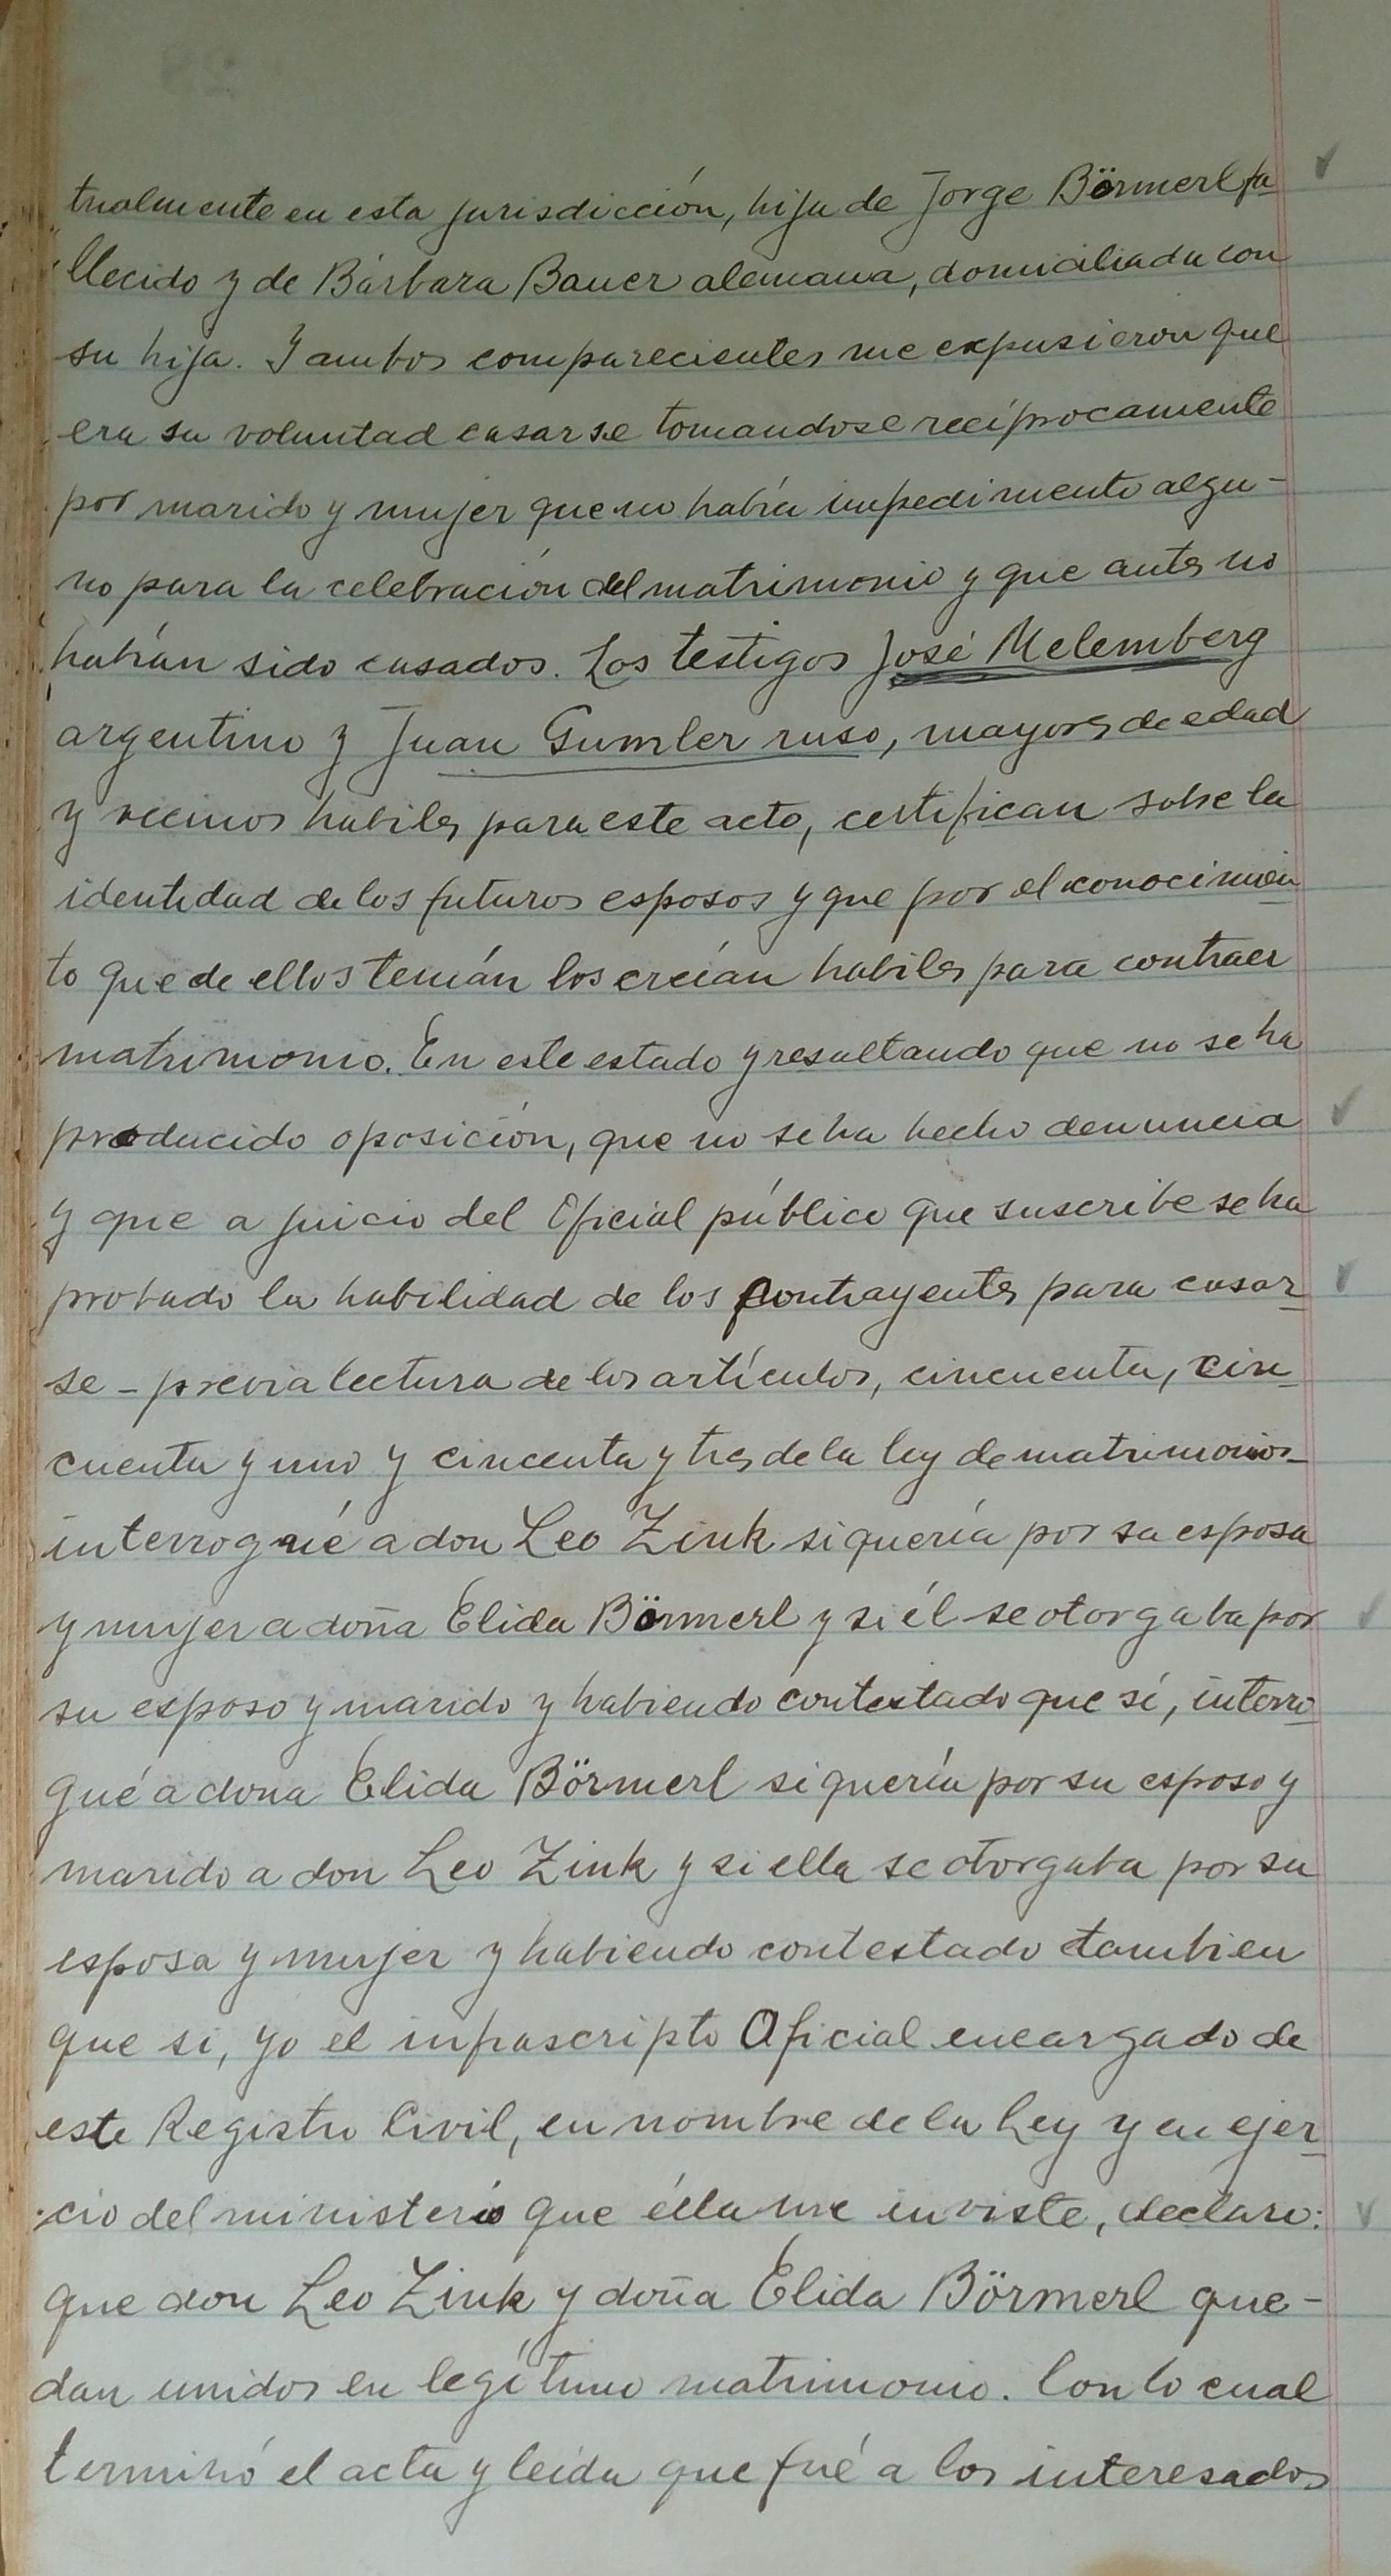 tualmente en esta jurisdicción, hija de Jorge Börmerl fa
llecido y de Bárbara Bauer alemana, domiciliada con
su hija. Y ambos comparecientes me expusieron que
era su voluntad casarse tomandose recíprocamente
por marido y mujer que no había impedimento algu-
no para la celebración del matrimonio y que antes no
habían sido casados. Los testigos José Melemberg
argentino y Juan Gumler ruso, mayores de edad
y vecinos habiles para este acto, certifican sobre la
identidad de los futuros esposos y que por el conocimien
to que de ellos tenían los creían habiles para contraer
matrimonio. En este estado y resultando que no se ha
producido oposición, que no se ha hecho denuncia
y que a juicio del Oficial público que suscribe se ha
probado la habilidad de los contrayentes para casar
se - previa lectura de los artículos, cincuenta, cin
cuenta y uno y cincenta y tres de la ley de matrimonios-
interrogué a don Leo Zink si quería por su esposa
y mujer a doña Elida Börmerl y si él se otorgaba por
su esposo y marido y habiendo contestado que sí, interro
gué a dona Elida Börmerl si quería por su esposo y
marido a don Leo Zink y si ella se otorgaba por su
esposa y mujer y habiendo contestado tambien
que si, yo el infrascripto Oficial encargado de
este Registro Civil, en nombre de la Ley y en ejer
cio del ministerio que élla me inviste, declaro:
que don Leo Zink y doña Elida Börmerl que-
dan unidos en legítimo matrimonio. Con lo cual
terminó el acta y leída que fué a los interesados